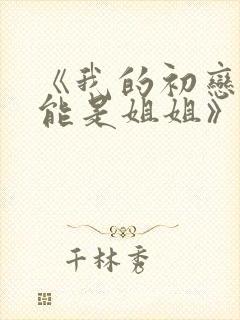 《我的初戀
能是姐姐》
千林秀